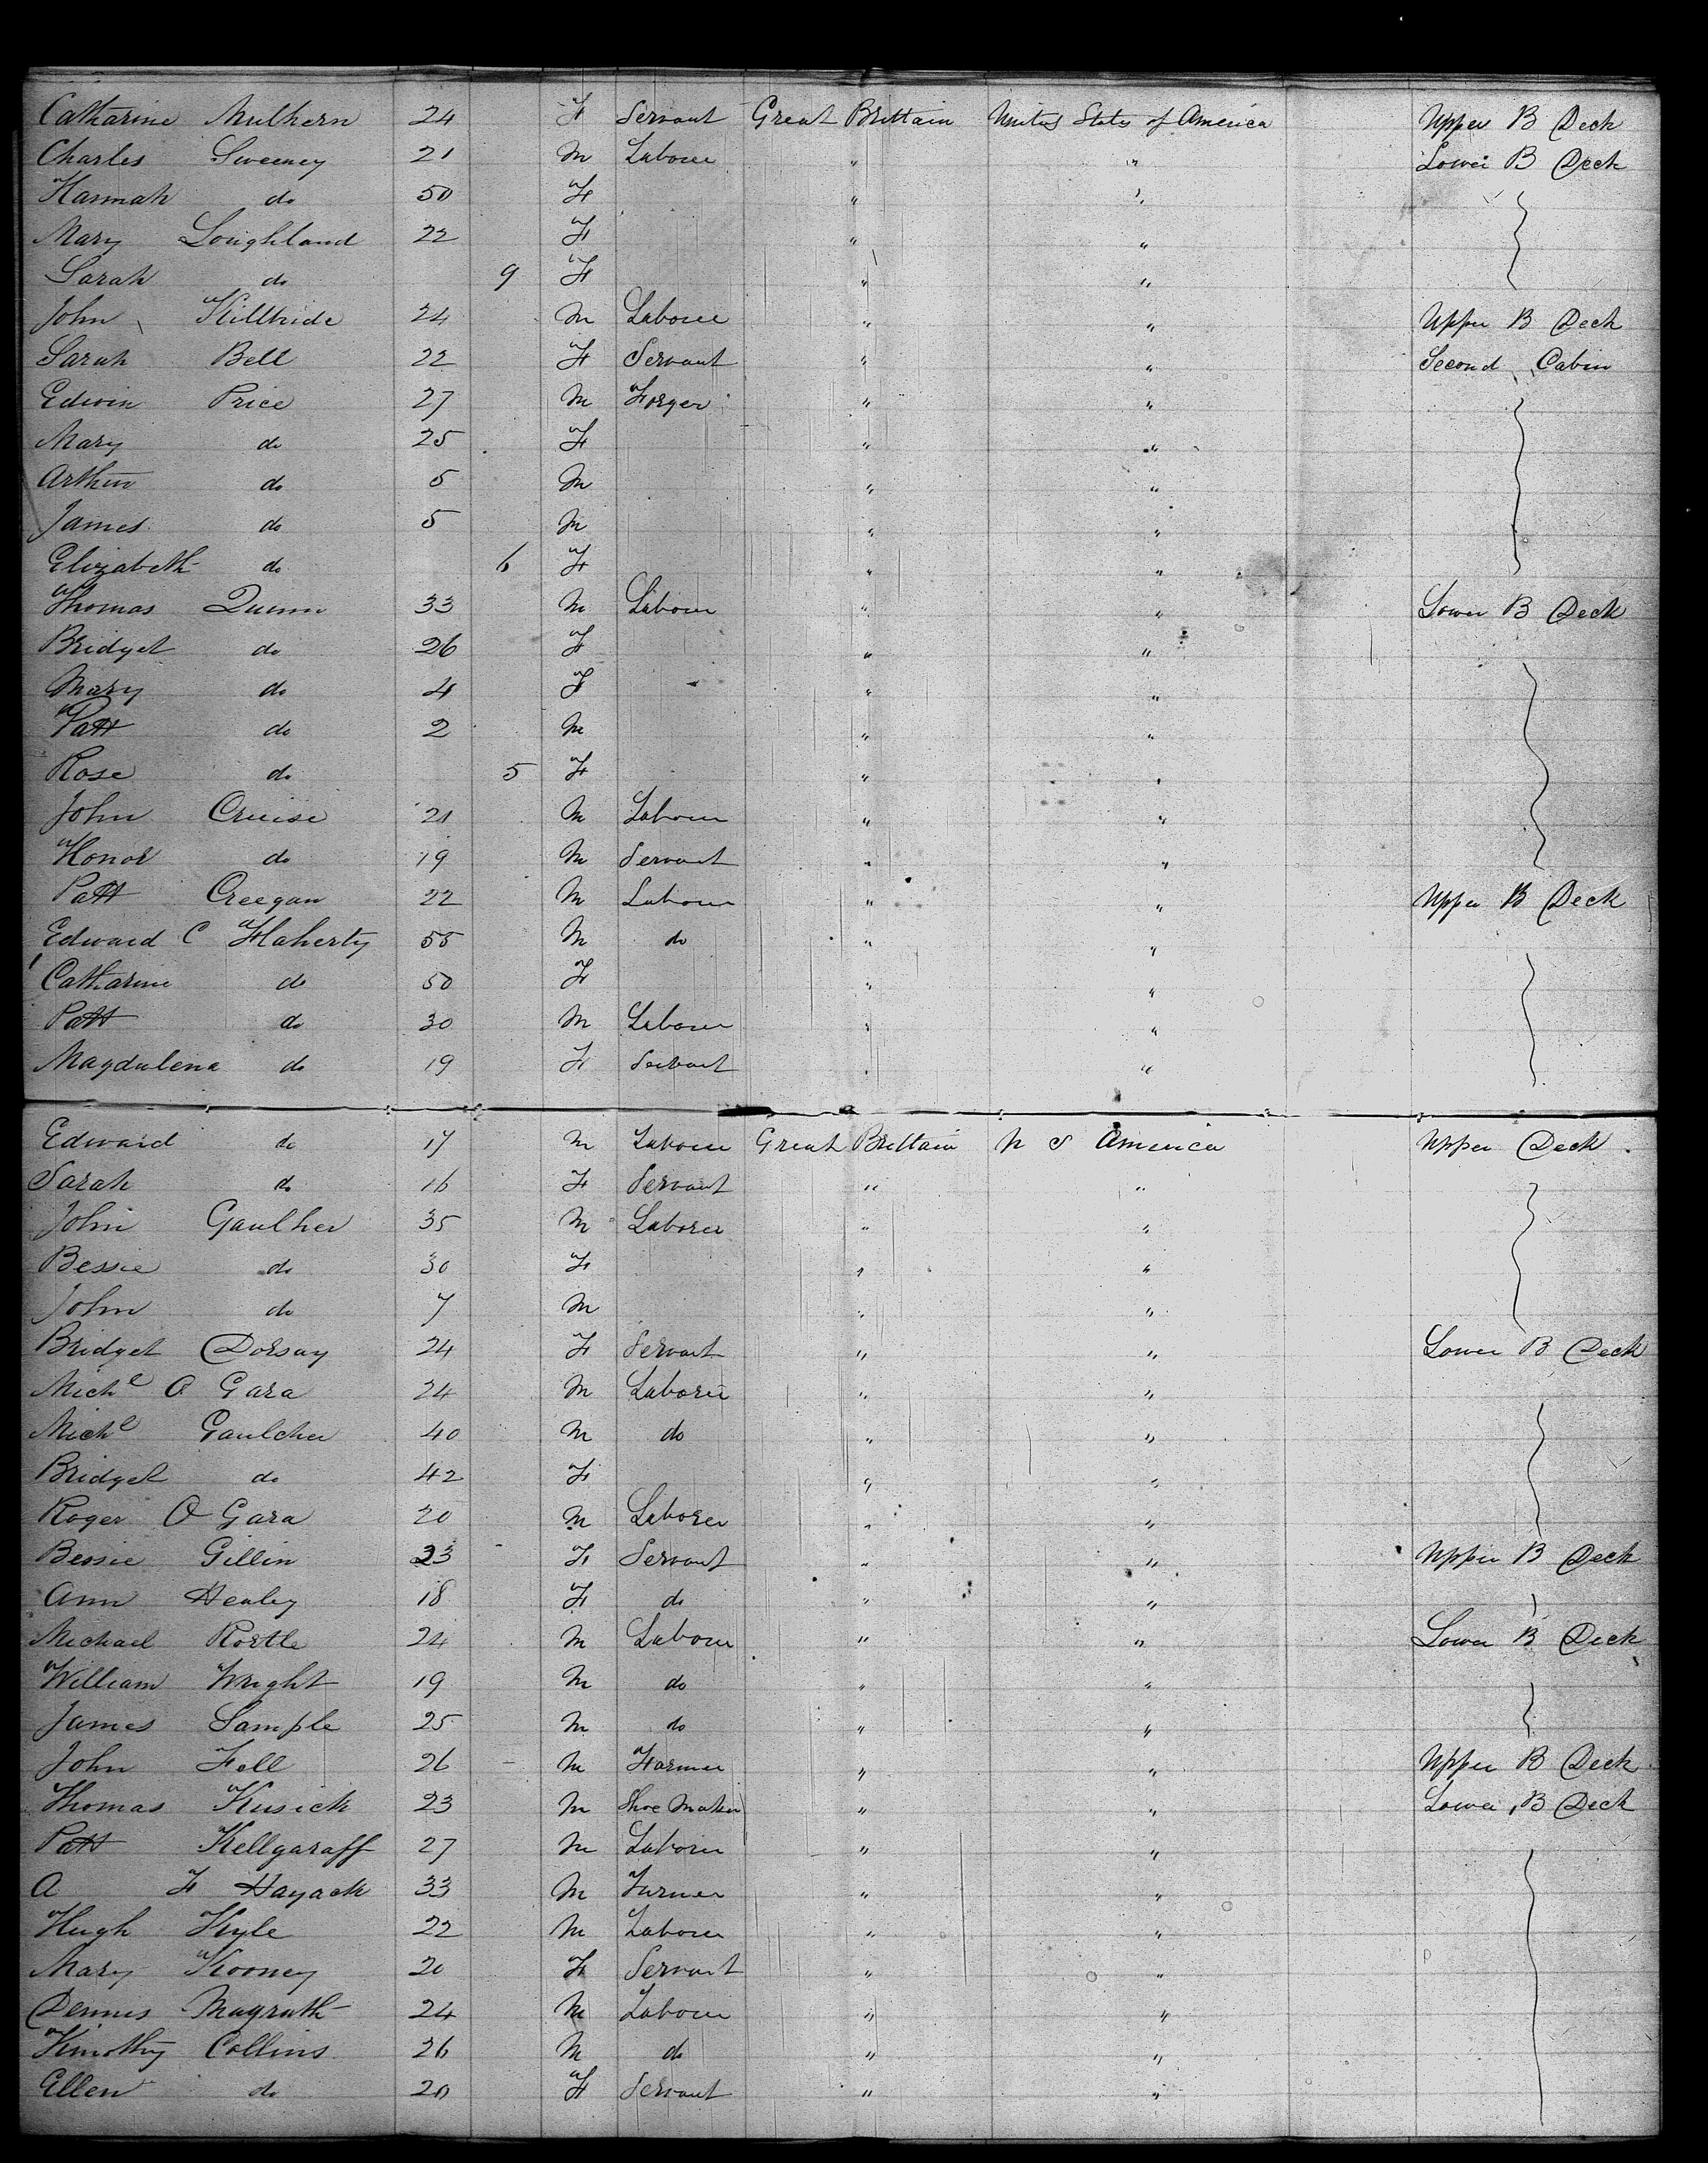 Catharine Mulhern 24 F Servant Great Brittain United States of America Upper B Deck
Charles Sweeney 21 M Laborer " " Lower B Deck
Hannah do 50 F " "
Mary Loughland 22 F " "
Sarah do 9 F " "
John Killbride 24 M Laborer " " Upper B Deck
Sarah Bell 22 F Servant " " Second Cabin
Edwin Price 27 M Forger " "
Mary do 25 F " "
Arthur do 5 M " "
James do 5 M " "
Elizabeth do 6 F " "
Thomas Quinn 33 M Laborer " " Lower B Deck
Bridget do 26 F " "
Mary do 4 F " "
Patt do 2 M " "
Rose do 5 F " "
John Cruise 21 M Laborer " "
Honor do 19 M Servant " "
Patt Creegan 22 M Laborer " " Upper B Deck
Edward C Flaherty 55 M do " "
Catharine do 50 F " "
Patt do 30 M Laborer " "
Magdalena do 19 F Servant " "
Edward do 17 M Laborer Great Brittain U S America Upper Deck
Sarah do 16 F Servant " "
John Gaulher 35 M Laborer " "
Bessie do 30 F " "
John do 7 M " "
Bridget Dorsay 24 F Servant " " Lower B Deck
Michl O Gara 24 M Laborer " "
Michl Gaulcher 40 M do " "
Bridget do 42 F " "
Roger O Gara 20 M Laborer " "
Bessie Gillin 23 F Servant " " Upper B Deck
Ann Healey 18 F do " "
Michael Rortle 24 M Laborer " " Lower B Deck
William Wright 19 M do " "
James Sample 25 M do " "
John Fell 26 - M Farmer " " Upper B Deck
Thomas Kusick 23 M Shoe Maker " " Lower B Deck
Patt Kellgaraff 27 M Laborer " "
A F Hayack 33 M Turner " "
Hugh Kyle 22 M Laborer " "
Mary Rooney 20 F Servant " "
Dennis Magrath 24 M Laborer " "
Timothy Collins 26 M do " "
Ellen do 20 F Servant " "